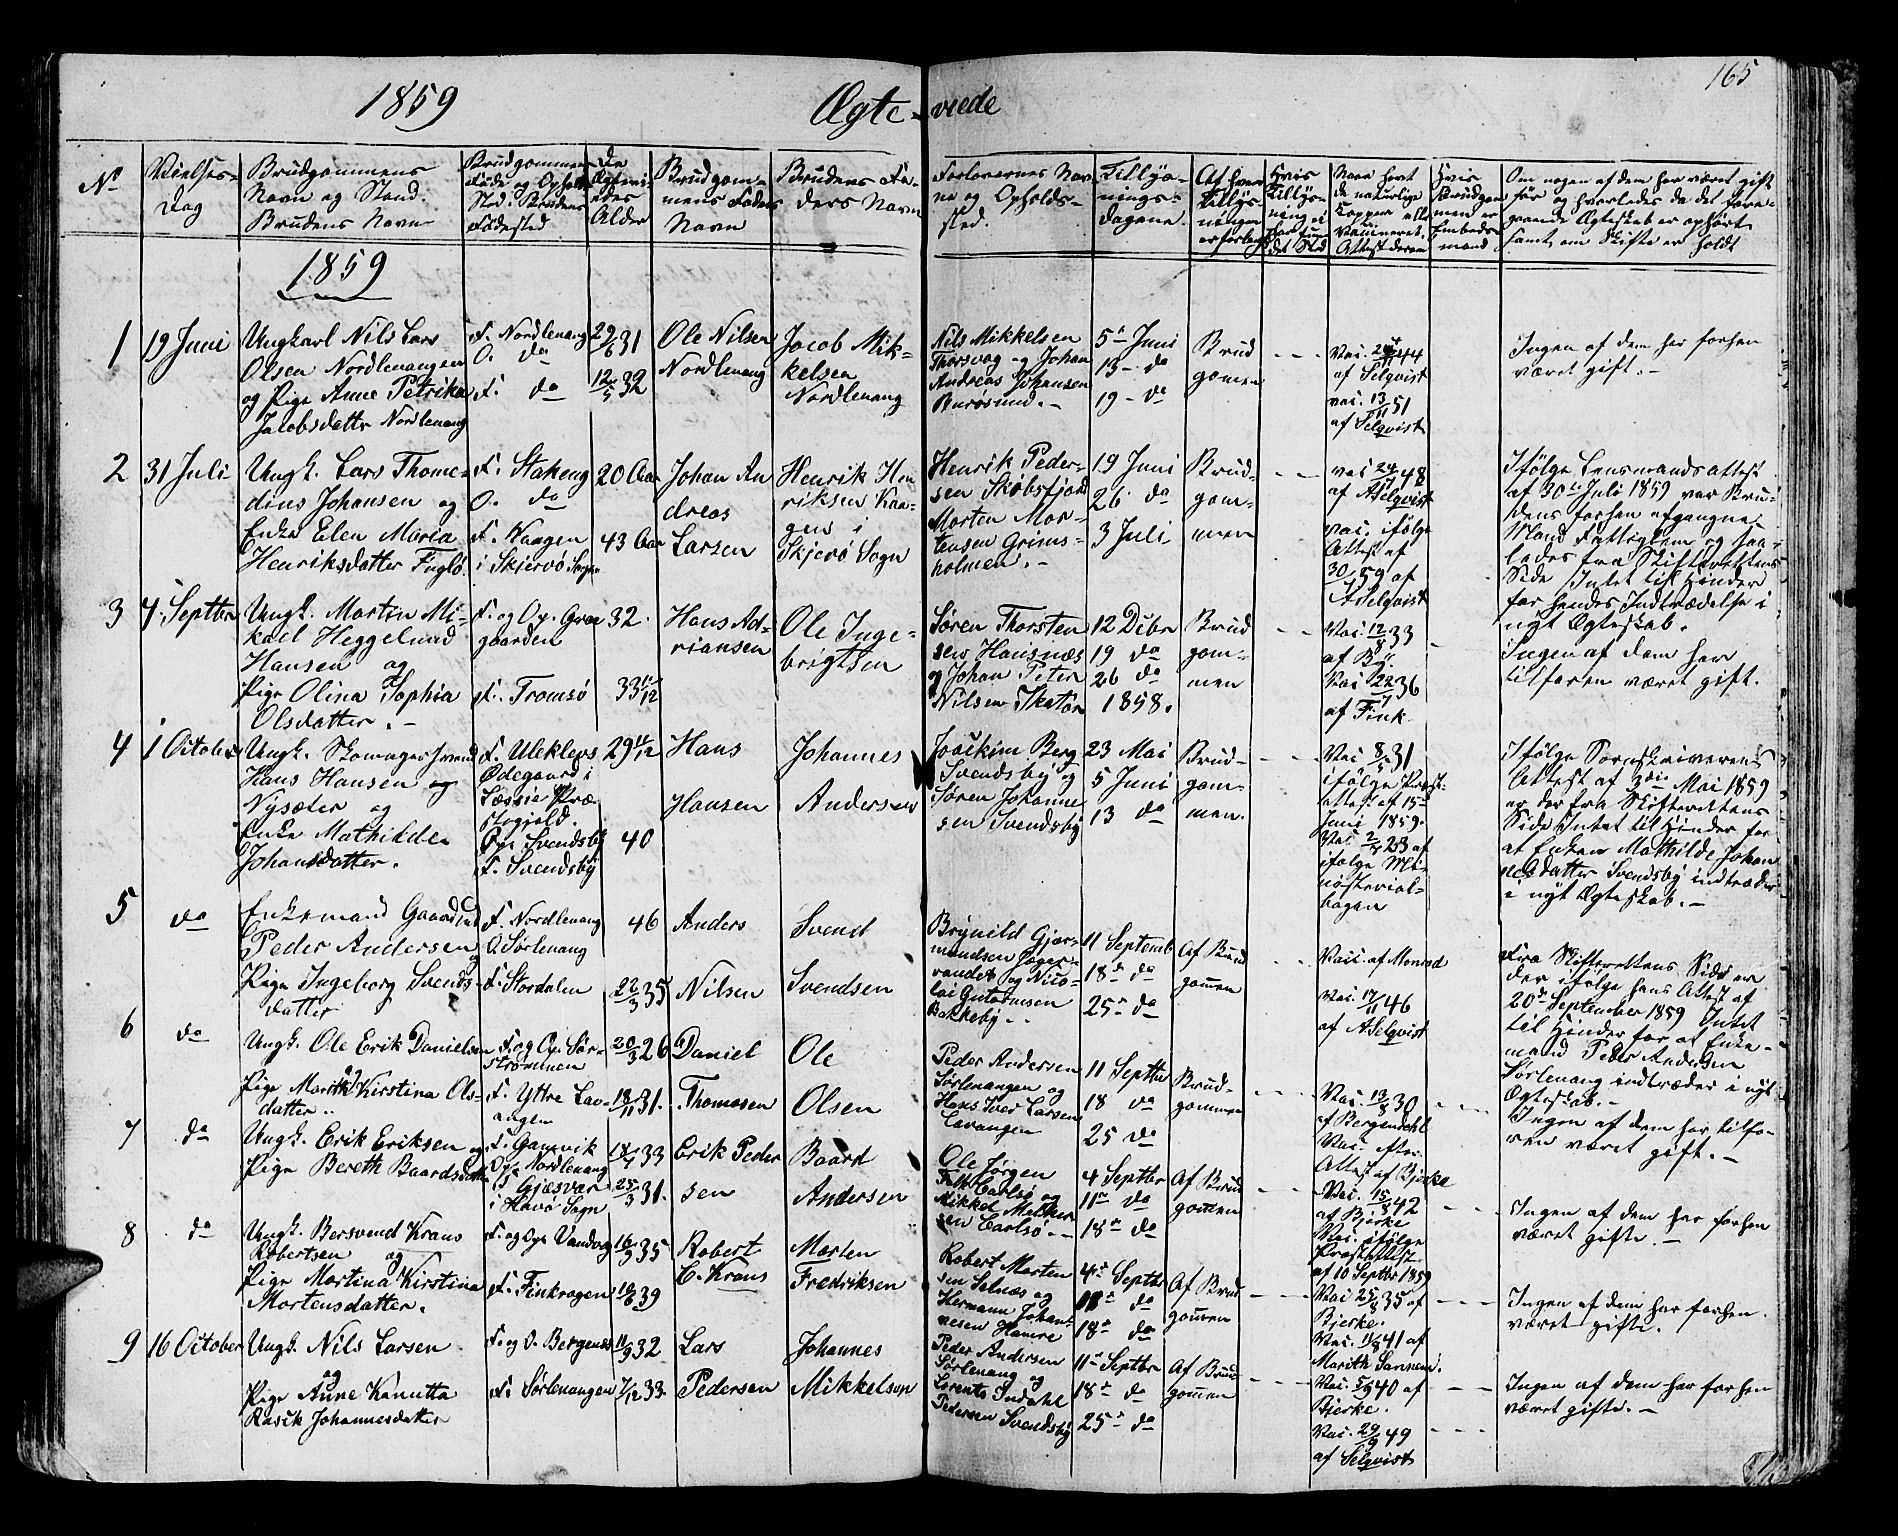 1859
Ægte-viede
165
No
Vielses-
Dag
Brudgommens
Navn og Stand.
Brudens Navn
Brudgommens
Føde og Opholds
Sted. Brudens
Fødested
De
Alder
Brudgom-
mens Faders
Navn
Brudens Fa-
ders Navn
Forlovernes Nav
ne og Opholds-
sted.
Tillys-
nings-
dagene.
Af hvem
Tillys-
ningen
er forlangt
Hvis
Tillys-
ning ei
har fun
det Sted
Naar havt
de naturlige
Kopper eller
Vaccineret.
Attest derom
Hvis
Brudgom
men er
Embeds-
mand
Om nogen af dem har været gift
før og hvorledes da det fore-
gaaende Ægteskab er ophørt
samt om Skifte er holdt
1859
1
19 Juni
Ungkarl Nils Lars
Olsen Nordlenangen
og Pige Anne Petrika
Jacobsdatter Nordlenang
F. Nordlenang
O. do
F. do
29/6 31
12/5 32
Ole Nilsen
Nordlenang
Jacob Mik-
kelsen
Nordlenang
Nils Mikkelsen
Thorsvog og Johan
Andreas Johansen
Burøsund.-
5te Juni
13- do
19- do
Brud
gomen
af Selqvist
vac. 13/11 51
af Selqvist
Ingen af dem har forhen
været gift.-
2
31 Juli
Ungk. Lars Thome-
dius Johansen og
Enke Elen Maria
Henriksdatter Fuglø.
F. Stakeng
O. do
F. Kaagen
i Skjervø Sogn
20 Aar
43 Aar
Johan An
dreas
Larsen
Henrik Hen
riksen Kaa-
gen i
Skjervø Sogn
Henrik Peder-
sen Skøbsfjord
Morten Mor-
tensen Grims-
holmen.-
19 Juni
26 do
3 Juli
Brud
gom-
men
af A Selqvist
vac. ifølge
Attest af
59 af
A Selqvist
Ifølge Lensmandsattest
af 30te Juli 1859 var Bru-
dens forhen afgangne
Mand Fattiglem og saa-
ledes fra Skifterettens
Side Intet til Hinder
for hendes Indtrædelse i
nyt Ægteskab.
3
4 Septbr
Ungk. Martin Mi-
kael Heggelund
Hansen og
Pige Olina Sophia
Olsdatter.-
F. og Op. Graa
gaarden
F. Tromsø
32.
33 11/12
Hans Ad-
riansen
Ole Inge-
brigtsen
Søren Thorsten
sen Hansnæs
og Johan Peter
Nilsen Skator
12 Debr
19 do
26 do
1858.
Brud
gom-
men
Vac. 12/8 33
af By.
Vac. 22/7 36
af Fink
Ingen af dem har
tilforen været gift.
4
1 October
Ungk. Skomagersvend
Hans Hansen og
Nysæter og
Enke Mathilde
Johansdatter.
F. Uleklevs
Ødegaard i
Læssie Præ-
stegjeld.
Op. Svendsby
F. Svendsby
29 11/12
40
Hans
Hansen
Johannes
Andersen
Joachim Berg
Svendsby og
Søren Johanne
sen Svendsby
23 Mai
5 Juni
13 do
Brud-
gom-
men.
Vac. 8/5 31
ifølge Præst-
attest af 15de
Juni 1859.
ifølge Mi-
nisterial-
bogen
Ifølge Sorenskriverens
Attest af 2den Mai 1859
er der fra Skifterettens
Side Intet til Hinder for
at Enken Mathilde Johan
nesdatter Svendsby indtræder
i nyt Ægteskab.-
5
do
Enkemand Gaardmd
Peder Andersen og
Pige Ingeborg Svends-
datter
F. Nordlenang
O. Sørlenang
F. Stordalen
46
22/3 35
Anders
Nilsen
Svend
Svendsen
Brynild Gjør-
mundsen Jæger-
vandet og Nico-
lai Gutormsen
Bakkeby.-
11 Septemb
18de do
25de do
Af Brud
gommen
Vac. af Monrad
Vac. 17/11 46
af A Selqvist
Fra Skifterettens Side er
der ifølge hans Attest af
20de September 1859 Intet
til Hinder for at Enke-
mand Peder Andersen
Sørlenang indtræder i nyt
Ægteskab.-
6
do
Ungk. Ole Erik Danielsen
Pige Marith Kirstina Ols-
datter.
F. og Op. Sør-
strømmen
F. Yttre Lav-
angen
20/3 26
18/11 31.
Daniel
Thomasen
Ole
Olsen
Peder Andersen
Sørlenangen og
Hans Iver Larsen
Lavangen
11 Septbr
18 do
25 do
Brud-
gommen
Vac. 13/8 30
af Bergendahl
Vac. efter
Attest af Bjerke
Ingen af dem har tilfo-
ren været gift.-
7
do
Ungk. Erik Eriksen og
Pige Bereth Baardsdatter
F. Gamvik
Op. Nordlenang
F. Gjæsvær
i Havø Sogn
14/7 33
25/3 31.
Erik Peder
sen
Baard
Andersen
Ole Jørgen
Falk Carlsø og
Mikkel Mether
sen Carlsø.-
4 Septbr
11te do
18de do
Af Brud
gommen
Vac. 15/8 42
af Bjerke
Vac. ifølge
Præstattest
af 10 Septbr 1859
Ingen af dem har forhen
været gifte.-
8
do
Ungk. Bersvend Kraus
Robertsen og
Pige Martina Kirstina
Mortensdatter.
F. og Op. Vandvog
F. Finkrogen
16/9 35
10/6 39
Robert
C. Kraus
Morten
Fredriksen
Robert Morten
sen Selnæs og
Hermann Johan-
nesen Hamre
4de Septbr
11te do
18de do
Af Brud
gommen
Vac. 25/8 35 af
Bjerke.
Vac. 11/8 41 af
Marith Sannem.
Ingen af dem har forhen
været gifte.
9
16 October
Ungk. Nils Larsen
og
Pige Anne Kanutta
Rasik Johannesdatter
F. og O. Bergenes
F. Sørlenangen
11/9 32
7/12 33
Lars
Pedersen
Johannes
Mikkelsen
Peder Andersen
Sørlenang og
Lorents Indahl
Pedersen Svendsby
11te Septbr
18de do
25de do
Af Brud
gommen
Vac. 5/9 40 af
Bjerke.
Vac. 29/9 49
af Selqvist
Ingen af dem har forhen
været gifte.-